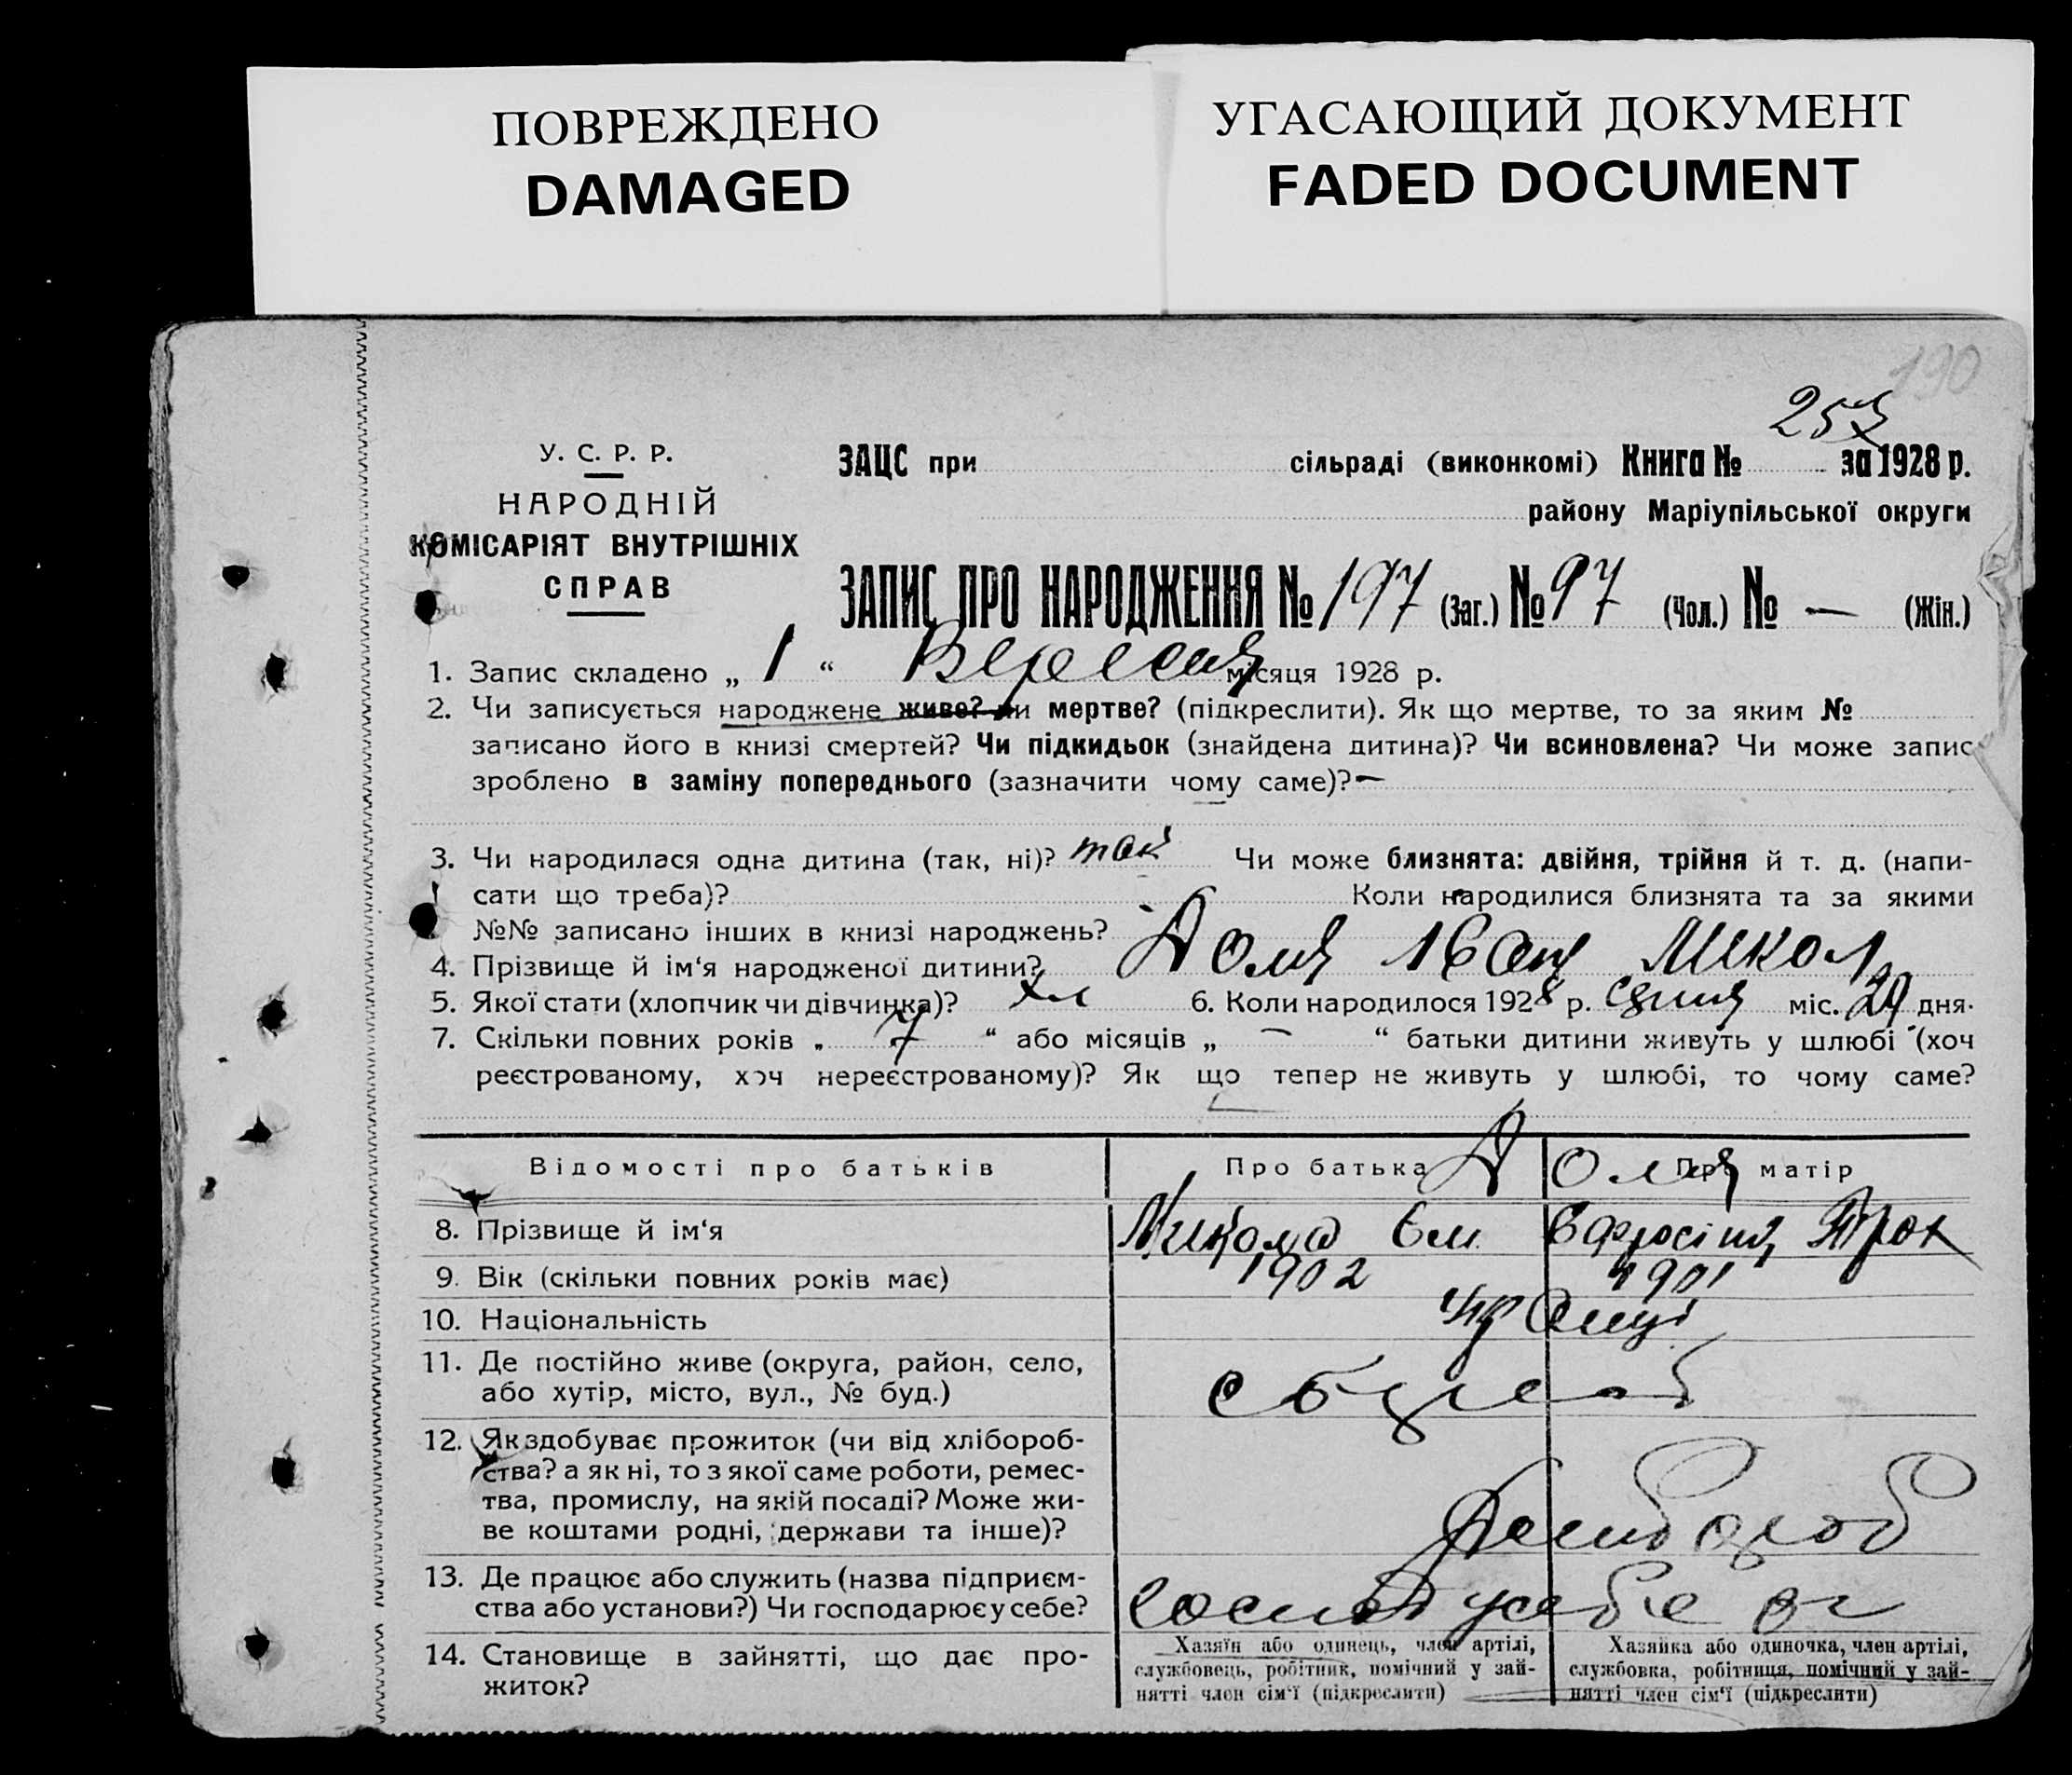 ПОВРЕЖДЕНО
DAMAGED
УГАСАЮЩИЙ ДОКУМЕНТ
FADED DOCUMENT
190
253
У. С. Р. Р.
НАРОДНІЙ
КОМІСАРІЯТ ВНУТРІШНІХ
СПРАВ
ЗАЦС при сільраді (виконкомі) Книга № за 1928 р.
району Маріупільської округи
ЗАПИС ПРО НАРОДЖЕННЯ № 197 (Заг.) № 97 (Чол.) № — (Жін.)
1. Запис складено „ 1 “ Вересня місяця 1928 р.
2. Чи записується народжене живе? чи мертве? (підкреслити). Як що мертве, то за яким №
записано його в книзі смертей? Чи підкидьок (знайдена дитина)? Чи всиновлена? Чи може запис
зроблено в заміну попереднього (зазначити чому саме)? —
3. Чи народилася одна дитина (так, ні)? так Чи може близнята: двійня, трійня й т. д. (напи-
сати що треба)? Коли народилися близнята та за якими
№№ записано інших в книзі народжень?
4. Прізвище й ім‘я народженої дитини? Доля Іван Микол
5. Якої стати (хлопчик чи дівчинка)? хл 6. Коли народилося 1928 р. серпня міс. 29 дня.
7. Скільки повних років „ 7 “ або місяців „ — “ батьки дитини живуть у шлюбі (хоч
реєстрованому, хоч нереєстрованому)? Як що тепер не живуть у шлюбі, то чому саме?
Відомості про батьків Про батька Про матір
Доля
8. Прізвище й ім‘я Микола Єм Єфросіня Прок
9. Вік (скільки повних років має) 1902 1901
10. Національність Українці
11. Де постійно живе (округа, район, село,
або хутір, місто, вул., № буд.)
12. Як здобуває прожиток (чи від хлібороб-
ства? а як ні, то з якої саме роботи, ремес-
тва, промислу, на якій посаді? Може жи-
ве коштами родні, держави та інше)?
13. Де працює або служить (назва підприєм-
ства або установи?) Чи господарює у себе? у себе
14. Становище в зайнятті, що дає про-
житок?
Хазяїн або одинець, член артілі,
службовець, робітник, помічний у зай-
нятті член сім‘ї (підкреслити)
Хазяйка або одиночка, член артілі,
службовка, робітниця, помічний у зай-
нятті член сім‘ї (підкреслити)